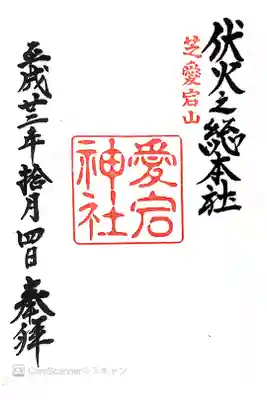 伏火之総本社
芝愛宕山
愛宕
神社
平成廿三年拾月四日奉拝
CamScannerでスキャン